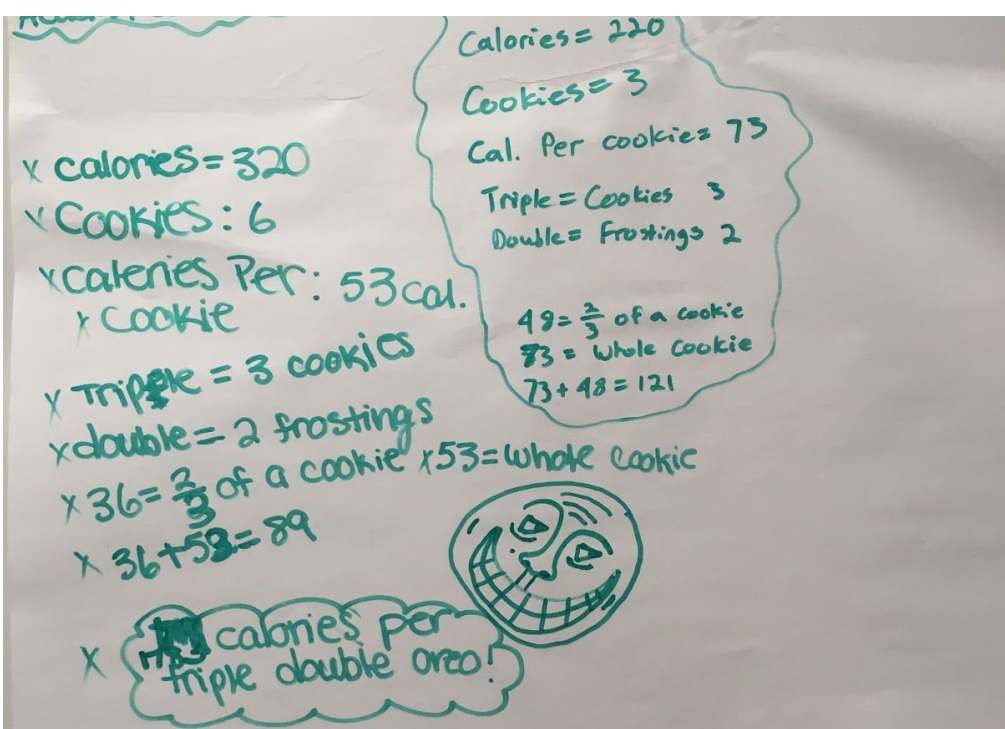 x calories = 320
x Cookies : 6
x caleries Per : 53 cal.
x Cookie
x Triple = 3 cookies
x double = 2 frostings
x 36 = 2/3 of a cookie x 53 = whole cookie
x 36 + 53 = 89
x calories per
triple double oreo!
Calories = 220
Cookies = 3
Cal. Per cookie = 73
Triple = Cookies 3
Double = Frostings 2
48 = 2/3 of a cookie
= whole cookie
73 + 48 = 121